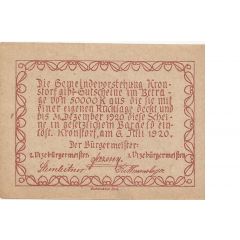 Die Gemeindevorstehung Kron-
storf gibt Gutscheine im Betra-
ge von 50000 K aus die sie mit
einer eigenen Rücklage deckt und
bis 31. Dezember 1920 diese Schei-
ne in gesetzlichem Bargeld ein-
löst. Kronstorf, am 6. Juli 1920.
Der Bürgermeister:
2. Vizebürgermeister: 1. Vizebürgermeister: